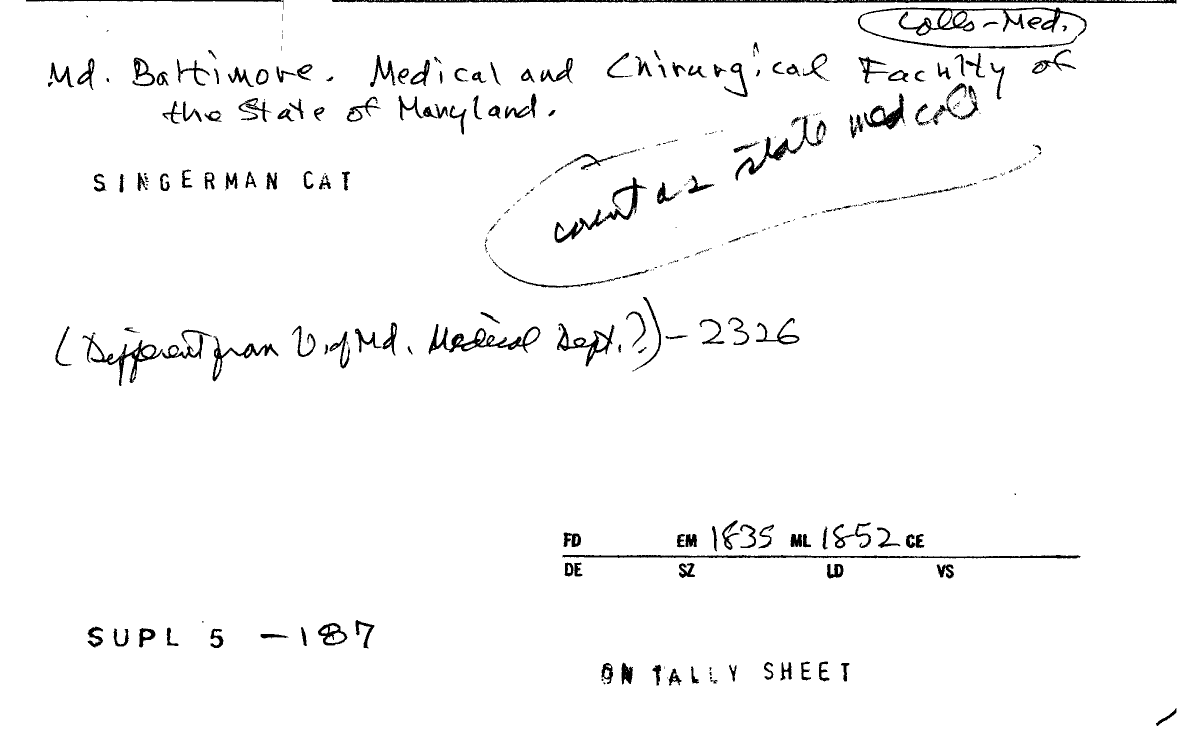 Colls-Med.
Md. Baltimore. Medical and Chirurgical Faculty of
the State of Maryland.
SINGERMAN CAT
count as state med coll
(Different from U. of Md. Medical Dept.?) - 2326
FD EM 1835 ML 1852 CE
DE SZ LD VS
SUPL 5 - 187
ON TALLY SHEET